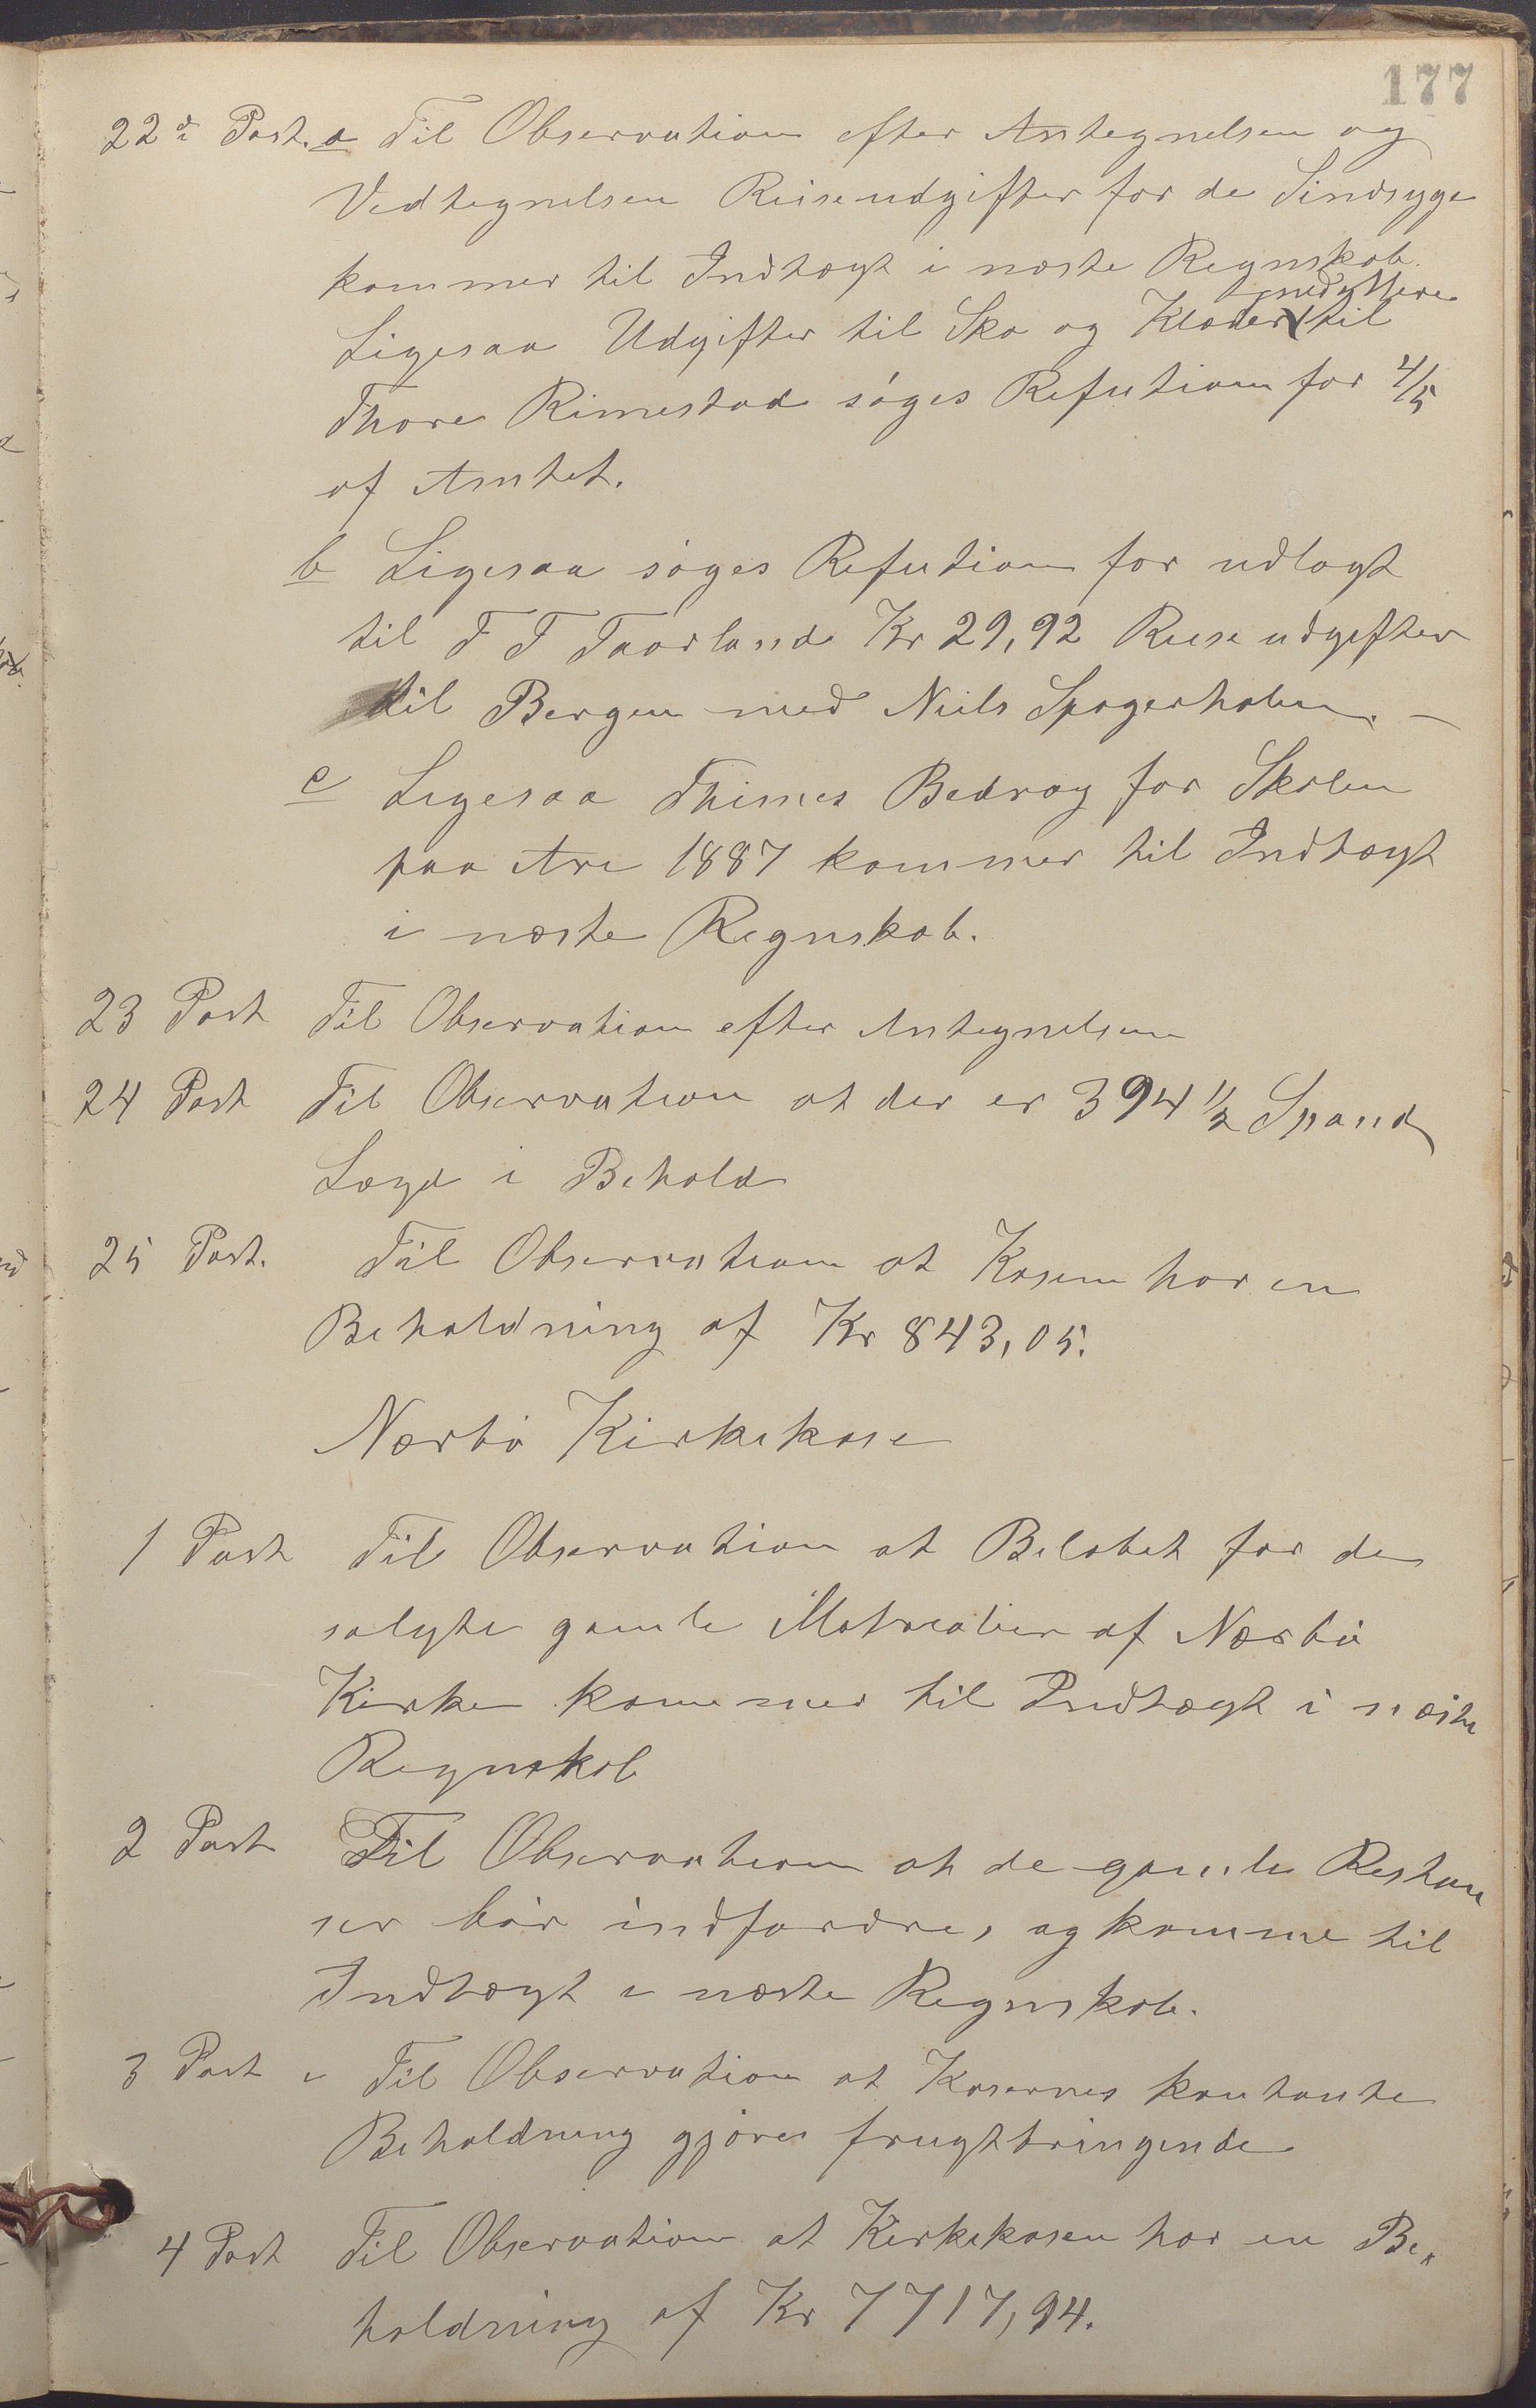 177
22de Post. a Til Observation efter Antegnelsen og
Vedtegnelsen Reiseudgifter for de Sindsyge
kommer til Indtægt i næste Regnskab.
Ligesaa Udgifter til Sko og Klæder til
Thore Rimestad søges Refution for 4/5
af Amtet.
b Ligesaa søges Refution for udlagt
til T T Taarland Kr 29,92 Reiseudgifter
til Bergen med Niels Spogerholm. –
c Ligesaa Thimes Bedrag for Skolen
paa Are 1887 kommer til Indtægt
i næste Regnskab.
23 Post Til Observation efter Antegnelsen
24 Post Til Observation at der er 394 1/2 Spand
Lægd i Behold
25 Post. Til Observation at Kasen har en
Beholdning af Kr 843,05.
Nærbø Kirkekase
1 Post Til Observation at Beløbet for de
solgte gamle Matrealier af Nærbø
Kirke kommer til Indtægt i næste
Regnskab
2 Post Til Observation at de gamle Restan
ser bør indfordres og komme til
Indtægt i næste Regnskab.
3 Post Til Observation at Kasernes kontante
Beholdning gjøres frugtbringende
4 Post Til Observation at Kirkekasen har en Be,
holdning af Kr 7717,94.